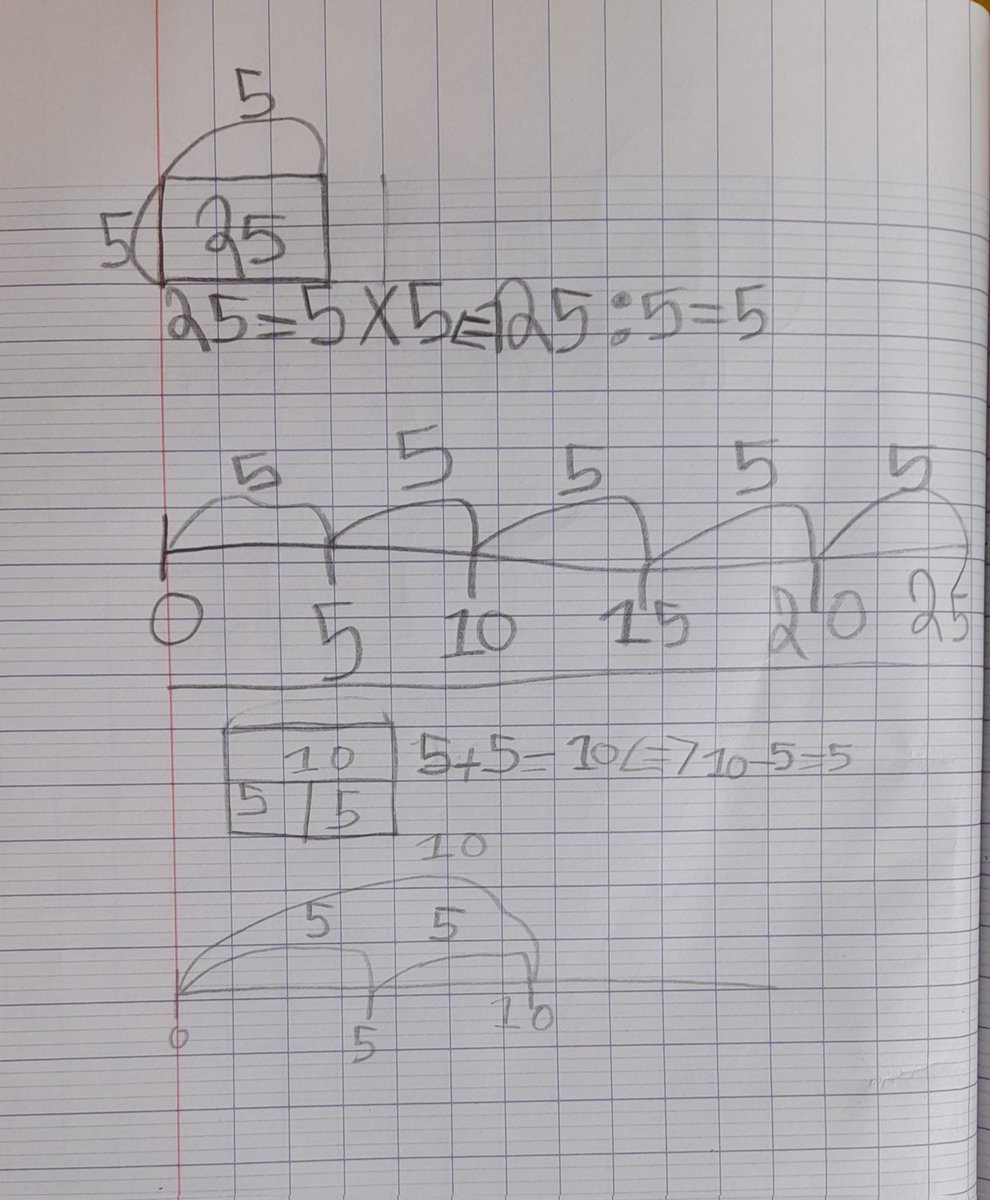 5
5 25
25=5X5<=>25:5=5
5 5 5 5 5
0 5 10 15 20 25
10 5+5=10<=>10-5=5
5 5
10
5 5
0 5 10